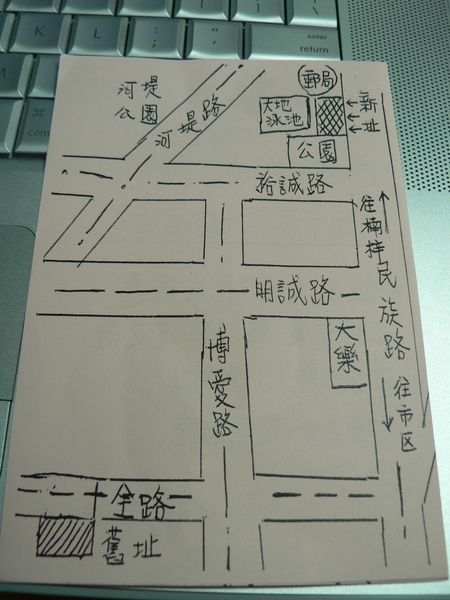 K
L
enter
return
M
⌘
河堤
公園
河堤路
郵局
大地
泳池
新址
公園
裕誠路
往楠梓
明誠路
民族路
大樂
博愛路
往市区
十全路
舊址